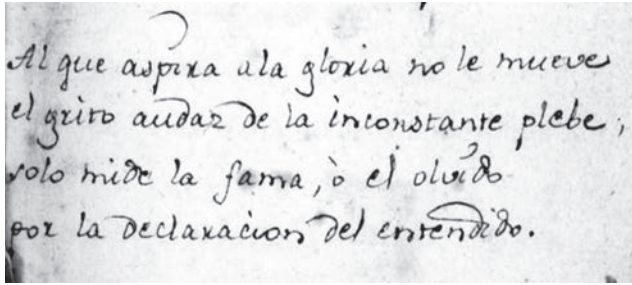 Al que aspira ala gloria no le mueve
el grito audaz de la inconstante plebe,
solo mide la fama, ò el olvido
por la declaracion del entendido.